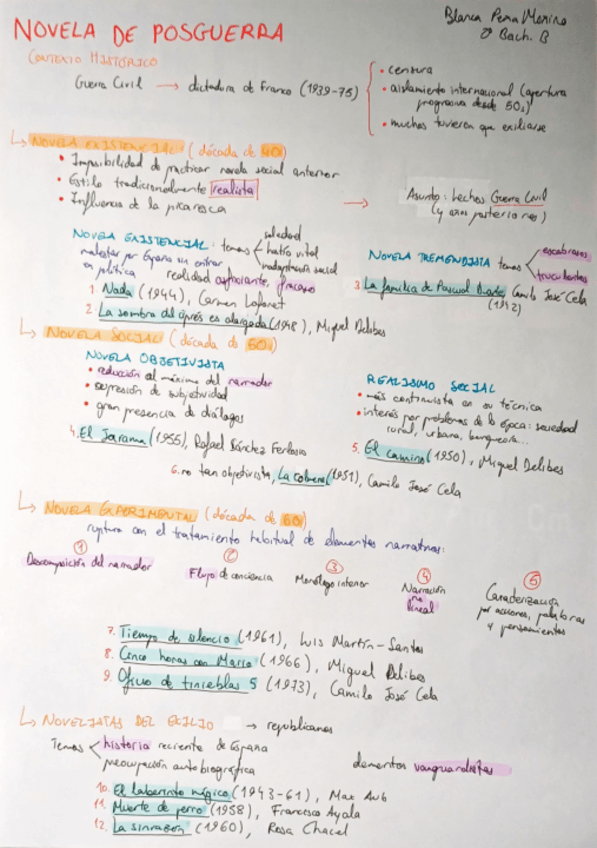 Blanca Pena Merino
2º Bach. B
NOVELA DE POSGUERRA
CONTEXTO HISTÓRICO
Guerra Civil → dictadura de Franco (1939-75)
• censura
• aislamiento internacional (apertura
progresiva desde 50s)
• muchos tuvieron que exiliarse
↳ NOVELA EXISTENCIAL (década de 40)
• Imposibilidad de practicar novela social anterior
• Estilo tradicionalmente realista
• Influencia de la picaresca
→ Asunto: hechos Guerra Civil
(y años posteriores)
NOVELA EXISTENCIAL: temas
soledad
hastío vital
inadaptación social
malestar por España sin entrar
en política
realidad asfixiante, fracaso
1. Nada (1944), Carmen Laforet
2. La sombra del ciprés es alargada (1948), Miguel Delibes
NOVELA TREMENDISTA temas
escabrosos
truculentos
3. La familia de Pascual Duarte, Camilo José Cela
(1942)
↳ NOVELA SOCIAL (década de 50s)
NOVELA OBJETIVISTA
• reducción al máximo del narrador
• supresión de subjetividad
• gran presencia de diálogos
4. El Jarama (1955), Rafael Sánchez Ferlosio
REALISMO SOCIAL
• más continuista en su técnica
• interés por problemas de la época: sociedad
rural, urbana, burguesía...
5. El camino (1950), Miguel Delibes
6. no tan objetivista, La colmena (1951), Camilo José Cela
↳ NOVELA EXPERIMENTAL (década de 60)
ruptura con el tratamiento habitual de elementos narrativos:
① Descomposición del narrador
② Flujo de conciencia
③ Monólogo interior
④ Narración
no
lineal
⑤ Caracterización
por acciones, palabras
y pensamientos
7. Tiempo de silencio (1961), Luis Martín-Santos
8. Cinco horas con Mario (1966), Miguel Delibes
9. Oficio de tinieblas 5 (1973), Camilo José Cela
↳ NOVELISTAS DEL EXILIO → republicanos
Temas
historia reciente de España
preocupación autobiográfica
elementos vanguardistas
10. El laberinto mágico (1943-61), Max Aub
11. Muerte de perro (1958), Francisco Ayala
12. La sinrazón (1960), Rosa Chacel